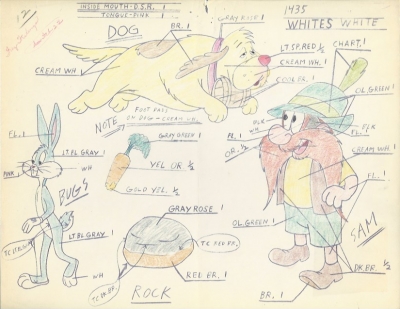 INSIDE MOUTH - D.S.R. 1
TONGUE - PINK 1
DOG
BR. 1
GRAY ROSE 1
1435
WHITES WHITE
LT. SP. RED ½
CREAM WH.
CHART. 1
CREAM WH. 1
OL. GREEN 1
NOTE
FOOT PADS
ON DOG - CREAM
GRAY GREEN 1
BLK
WH
FL. 1
OR. ½
BLK
FL. 1
LT. BL GRAY 1
YEL OR ½
CREAM WH
PINK
WH
GOLD YEL. ½
FL. 1
BUGS
GRAY ROSE 1
OL. GREEN 1
LT. BL GRAY 1
SAM
WH
RED BR. 1
DK. BR. ½
ROCK
BR. 1